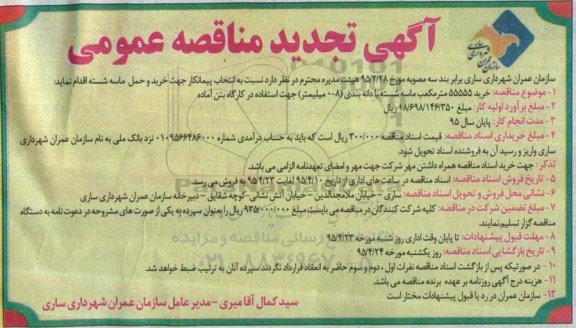 آگهی تجدید مناقصه عمومی
سازمان عمران شهرداری ساری
سازمان عمران شهرداری ساری برابر بند سه مصوبه مورخ ۹۵/۲/۲۸ هیئت مدیره محترم در نظر دارد نسبت به انتخاب پیمانکار جهت خرید و حمل ماسه شسته اقدام نماید:
۱- موضوع مناقصه: خرید ۵۵۵۵۵ مترمکعب ماسه شسته با دانه بندی (۸-۰ میلیمتر) جهت استفاده در کارگاه بتن آماده
۲- مبلغ برآورد اولیه کار: مبلغ ۱۸/۶۹۸/۱۴۶/۳۵۰ ریال
۳- مدت انجام کار: پایان سال ۹۵
۴- مبلغ خریداری اسناد مناقصه: قیمت اسناد مناقصه ۳۰۰/۰۰۰ ریال است که باید به حساب درآمدی شماره ۰۱۰۹۵۶۶۴۸۶۰۰۰ نزد بانک ملی به نام سازمان عمران شهرداری
ساری واریز و رسید آن به فروشنده اسناد تحویل شود.
تذکر: جهت خرید اسناد مناقصه همراه داشتن مهر شرکت جهت مهر و امضای تعهدنامه الزامی می باشد.
۵- تاریخ فروش اسناد مناقصه: اسناد مناقصه در ساعت های اداری از تاریخ ۹۵/۴/۱۰ لغایت ۹۵/۴/۲۳ به فروش می رسد.
۶- نشانی محل فروش و تحویل اسناد مناقصه: ساری - خیابان ملامجدالدین - خیابان آتش نشانی - کوچه شقایق - دبیرخانه سازمان عمران شهرداری ساری
۷- مبلغ تضمین شرکت در مناقصه: کلیه شرکت کنندگان در مناقصه می بایست مبلغ ۹۳۵/۰۰۰/۰۰۰ ریال را بعنوان سپرده به یکی از صورت های مشروحه در دعوت نامه به دستگاه
مناقصه گزار تسلیم نمایند.
۸- مهلت قبول پیشنهادات: تا پایان وقت اداری روز شنبه مورخه ۹۵/۴/۲۳
۹- تاریخ بازگشایی اسناد مناقصه: روز یکشنبه مورخه ۹۵/۴/۲۴
۱۰- در صورتیکه پس از بازگشت اسناد مناقصه نفرات اول، دوم و سوم حاضر به انعقاد قرارداد نگردند سپرده آنان به ترتیب ضبط خواهد شد.
۱۱- هزینه درج آگهی روزنامه بر عهده برنده مناقصه می باشد.
۱۲- سازمان عمران در رد یا قبول پیشنهادات مختار است
سید کمال آقامیری - مدیر عامل سازمان عمران شهرداری ساری